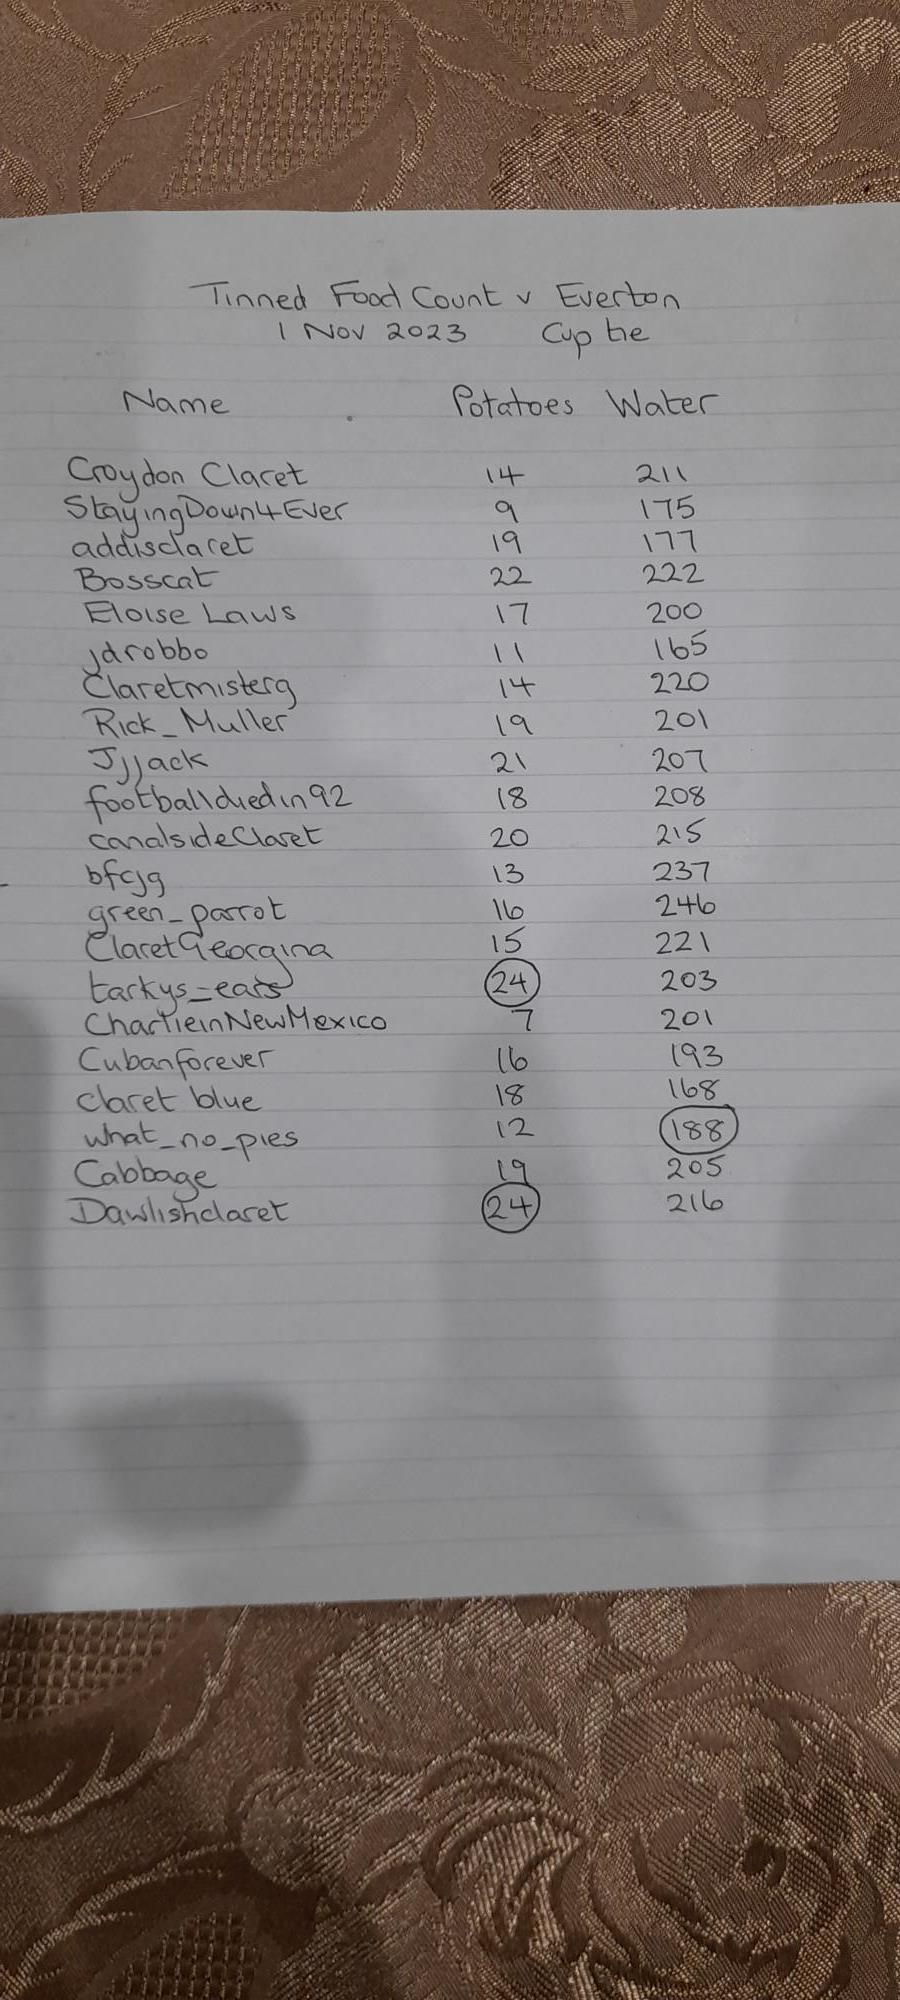 Tinned Food Count v Everton
1 Nov 2023 Cup tie
Name Potatoes Water
Croydon Claret 14 211
StayingDown4Ever 9 175
addisclaret 19 177
Bosscat 22 222
Eloise Laws 17 200
jdrobbo 11 165
Claretmisterg 14 220
Rick_Muller 19 201
Jjjack 21 207
footballdiedin92 18 208
canalsideClaret 20 215
bfcjg 13 237
green_parrot 16 246
ClaretGeorgina 15 221
tarkys_ears 24 203
CharlieinNewMexico 7 201
Cubanforever 16 193
claret blue 18 168
what_no_pies 12 188
Cabbage 19 205
Dawlishclaret 24 216